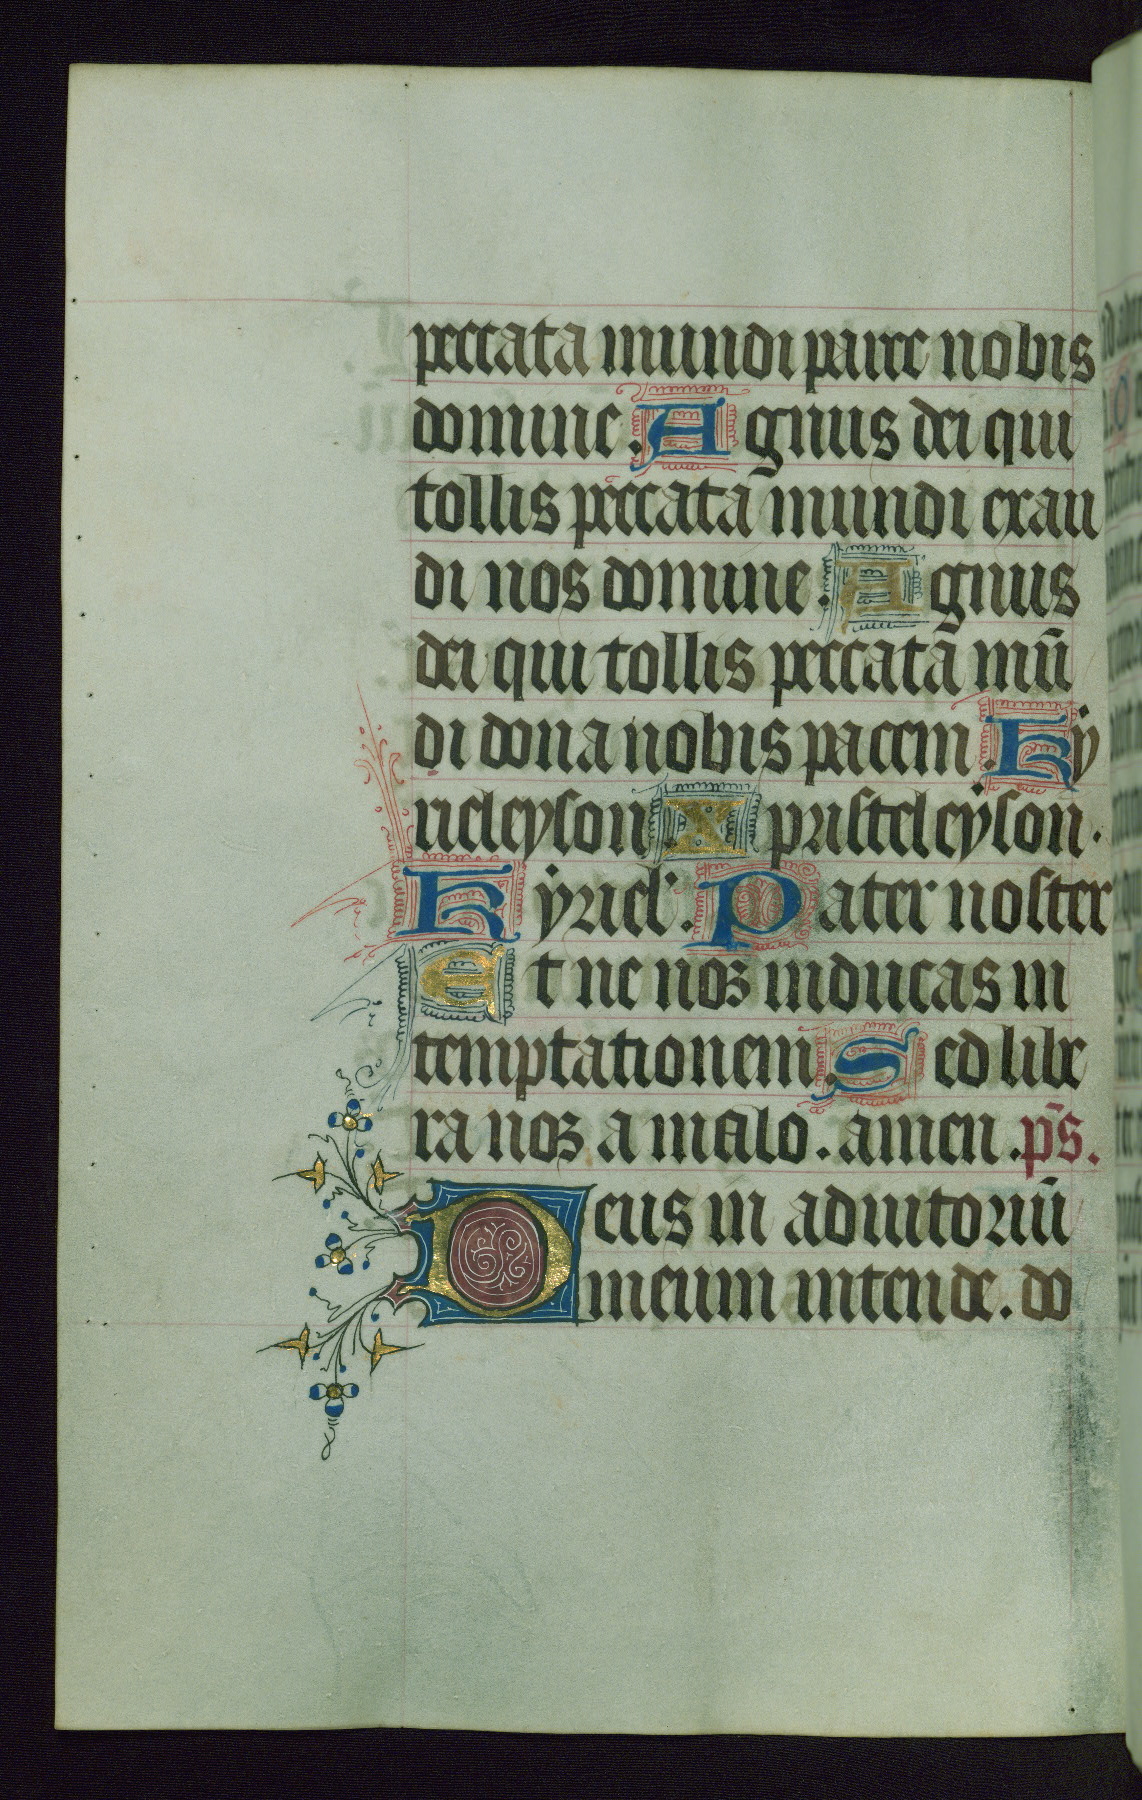 peccata mundi parce nobis
domine. Agnus dei qui
tollis peccata mundi exau
di nos domine. Agnus
dei qui tollis peccata mū
di dona nobis pacem. Ky
rieleyson. Xpristeleyson.
Kyriel'. Pater noster
Et ne nos inducas in
temptationem. Sed libe
ra nos a malo. amen. p̄s.
Deus in adiutoriū
meum intende. do